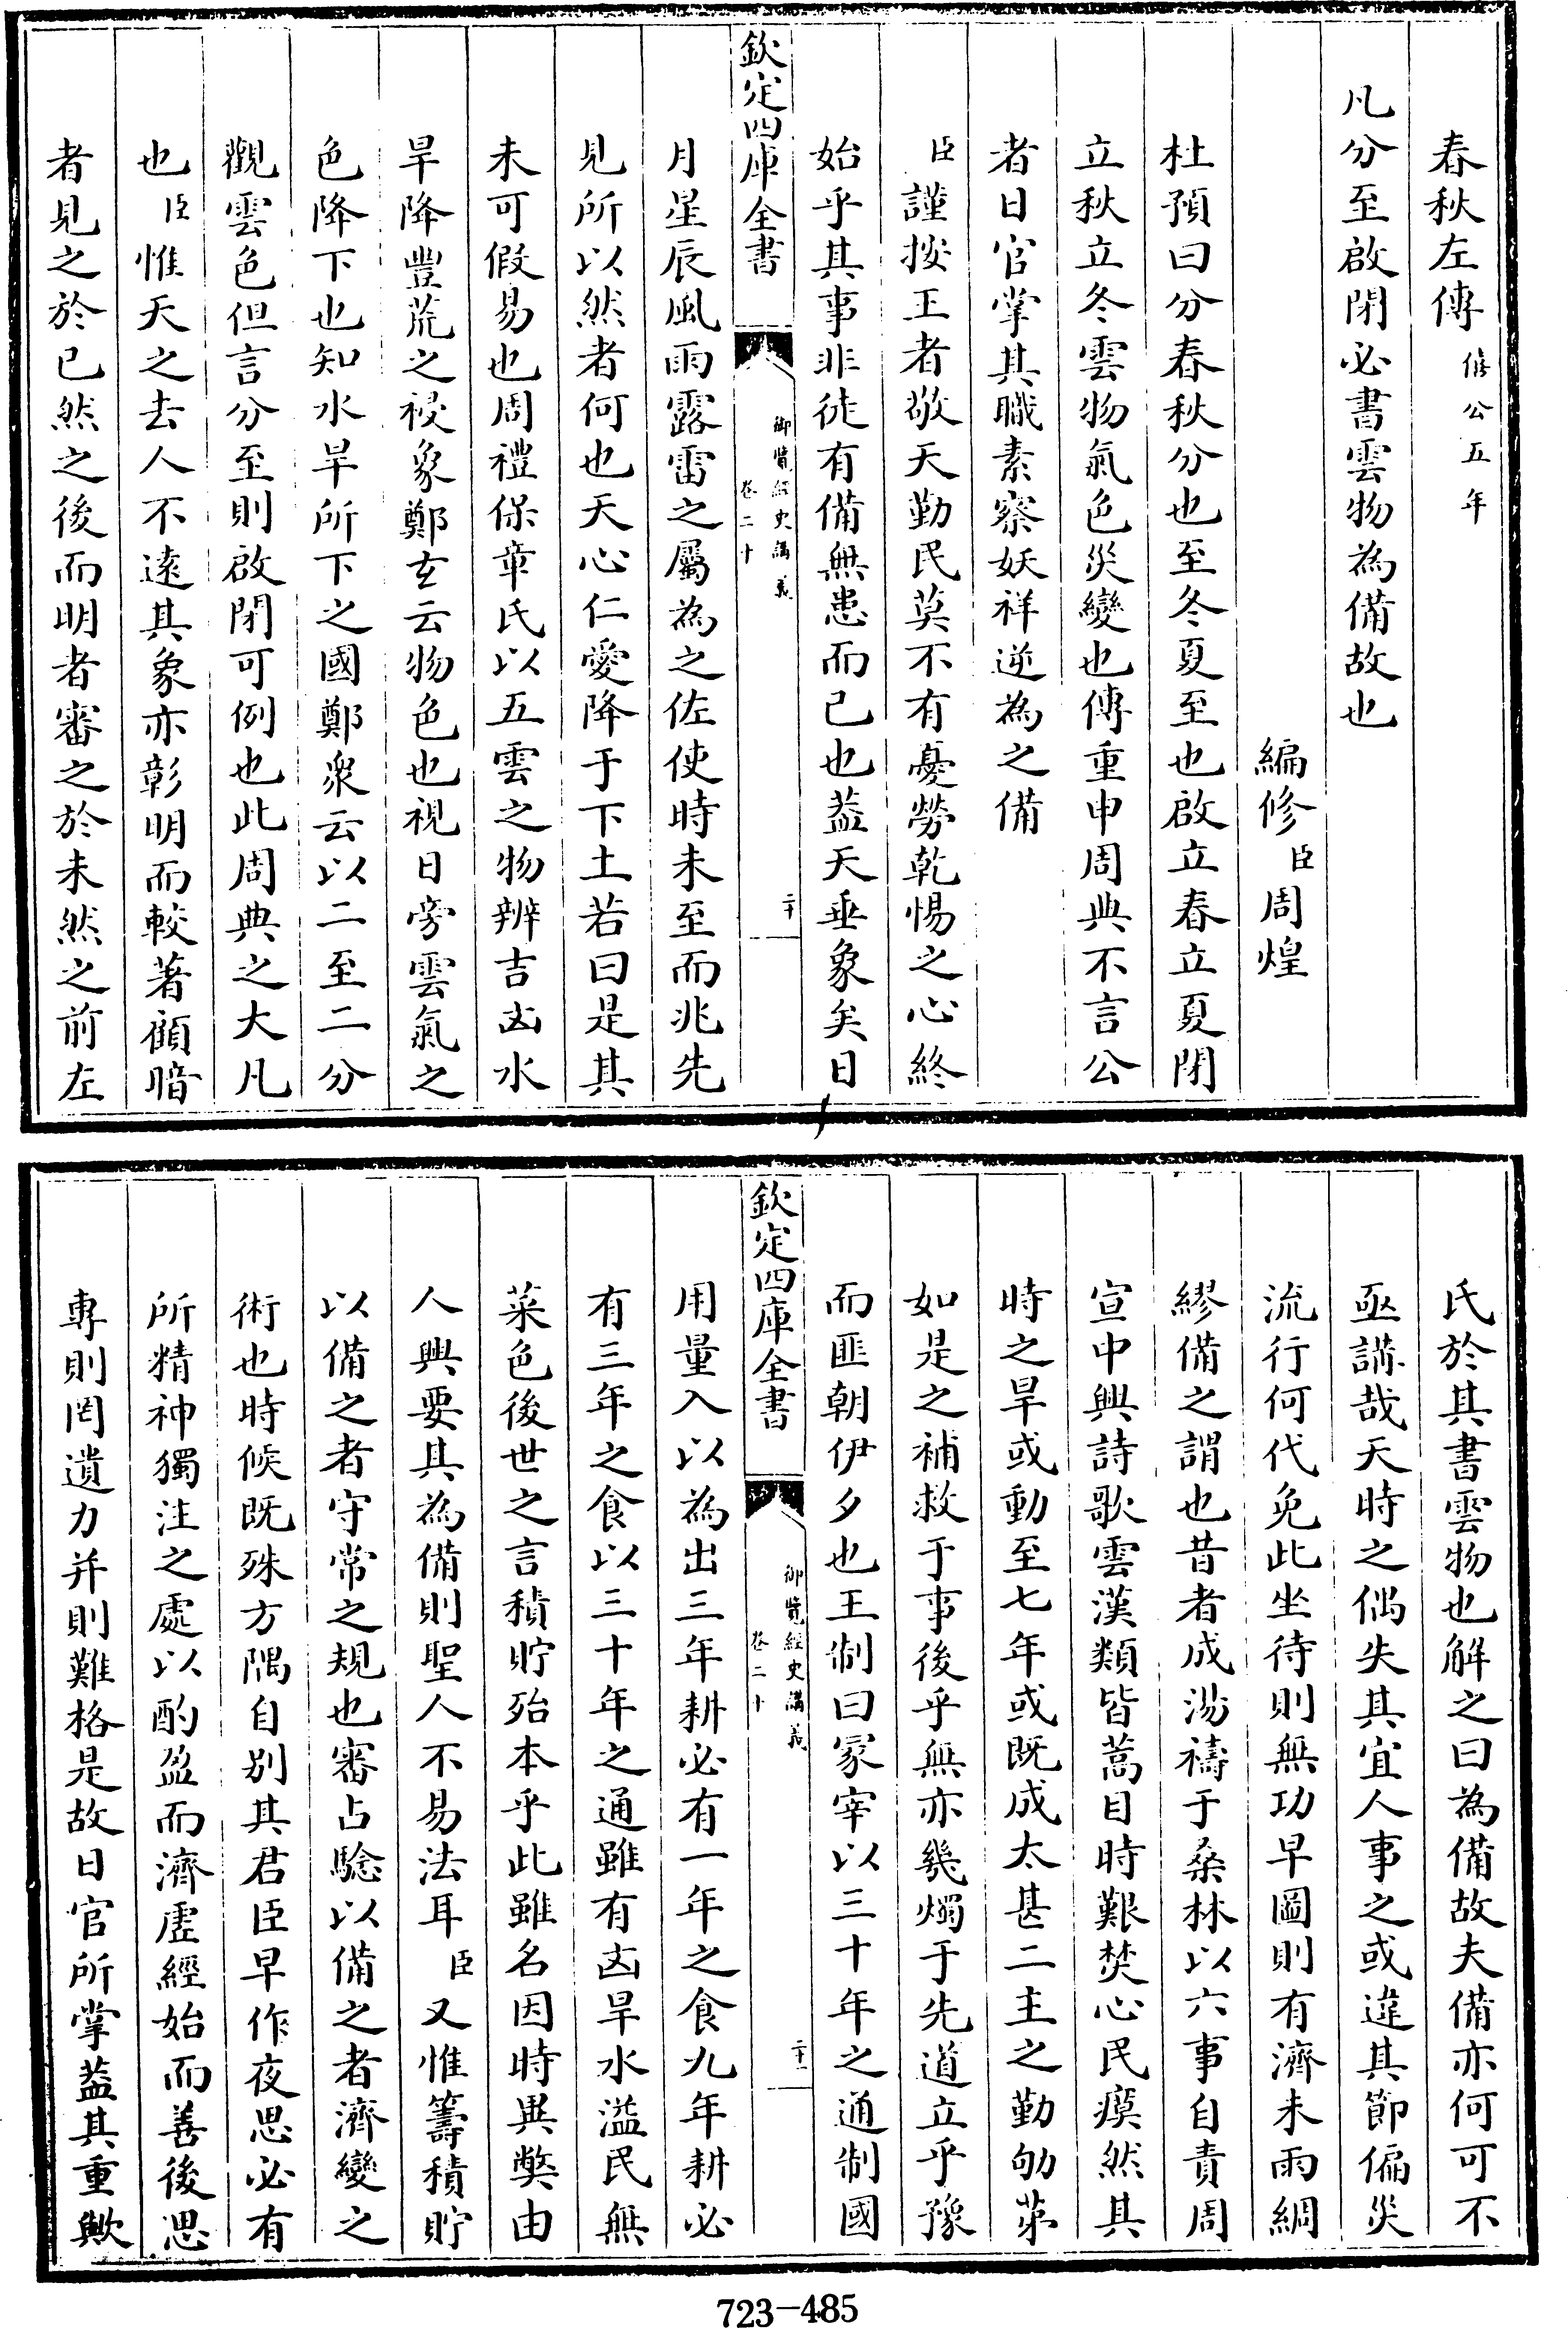 春秋左傳僖公五年
凡分至啟閉必書雲物為備故也
編修臣周煌
杜預曰分春秋分也至冬夏至也啟立春立夏閉
立秋立冬雲物氣色災變也傳重申周典不言公
者日官掌其職素察妖祥逆為之備
臣謹按王者敬天勤民莫不有憂勞乾惕之心終
始乎其事非徒有備無患而已也葢天垂象矣日
欽定四庫全書
御覽經史講義
卷二十
二十
月星辰風雨露雷之屬為之佐使時未至而兆先
見所以然者何也天心仁愛降于下土若曰是其
未可假易也周禮保章氏以五雲之物辨吉凶水
旱降豐荒之祲象鄭玄云物色也視日旁雲氣之
色降下也知水旱所下之國鄭衆云以二至二分
觀雲色但言分至則啟閉可例也此周典之大凡
也臣惟天之去人不遠其象亦彰明而較著顧暗
者見之於已然之後而明者審之於未然之前左
氏於其書雲物也解之曰為備故夫備亦何可不
亟講哉天時之偶失其宜人事之或違其節偏災
流行何代免此坐待則無功早圖則有濟未雨綢
繆備之謂也昔者成湯禱于桑林以六事自責周
宣中興詩歌雲漢類皆蒿目時艱焚心民瘼然其
時之旱或動至七年或既成太甚二主之勤劬第
如是之補救于事後乎無亦幾燭于先道立乎豫
而匪朝伊夕也王制曰冢宰以三十年之通制國
欽定四庫全書
御覽經史講義
卷二十
二十一
用量入以為出三年耕必有一年之食九年耕必
有三年之食以三十年之通雖有凶旱水溢民無
菜色後世之言積貯殆本乎此雖名因時異獘由
人興要其為備則聖人不易法耳臣又惟籌積貯
以備之者守常之規也審占驗以備之者濟變之
術也時候既殊方隅自别其君臣早作夜思必有
所精神獨注之處以酌盈而濟虛經始而善後思
專則罔遺力并則難格是故日官所掌葢其重歟
723-485